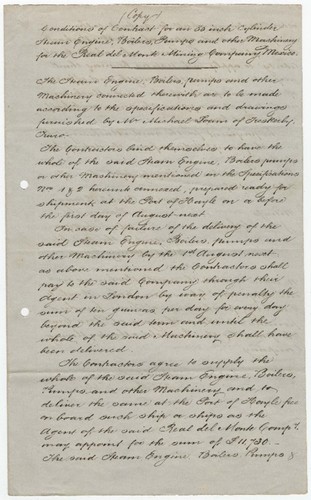 (Copy)
Conditions of Contract for an 85 inch Cylinder
Steam Engine, Boilers, Pumps and other Machinery
for the Real del Monte Mining Company Mexico.
The Steam Engine, Boilers, pumps and other
Machinery connected therewith are to be made
according to the specifications and drawings
furnished by Mr Michael Loam of Treskerby,
Truro.
The Contractors bind themselves to have the
whole of the said Steam Engine, Boilers, pumps
or other Machinery mentioned in the Specifications
Nos 1 & 2 herewith annexed, prepared ready for
shipment, at the Port of Hayle on or before
the first day of August next.
In case of failure of the delivery of the
said Steam Engine, Boilers, pumps and
other Machinery by the 1st August next
as above mentioned the Contractors shall
pay to the said Company through their
Agent in London by way of penalty the
sum of ten guineas per day for every day
beyond the said term and until the
whole of the said Machinery shall have
been delivered.
The Contractors agree to supply the
whole of the said Steam Engine, Boilers,
Pumps, and other Machinery and to
deliver the same at the Port of Hayle free
on board such ship or ships as the
Agent of the said Real del Monte Compy.
may appoint for the sum of £11,730.-
The said Steam Engine Boilers Pumps &